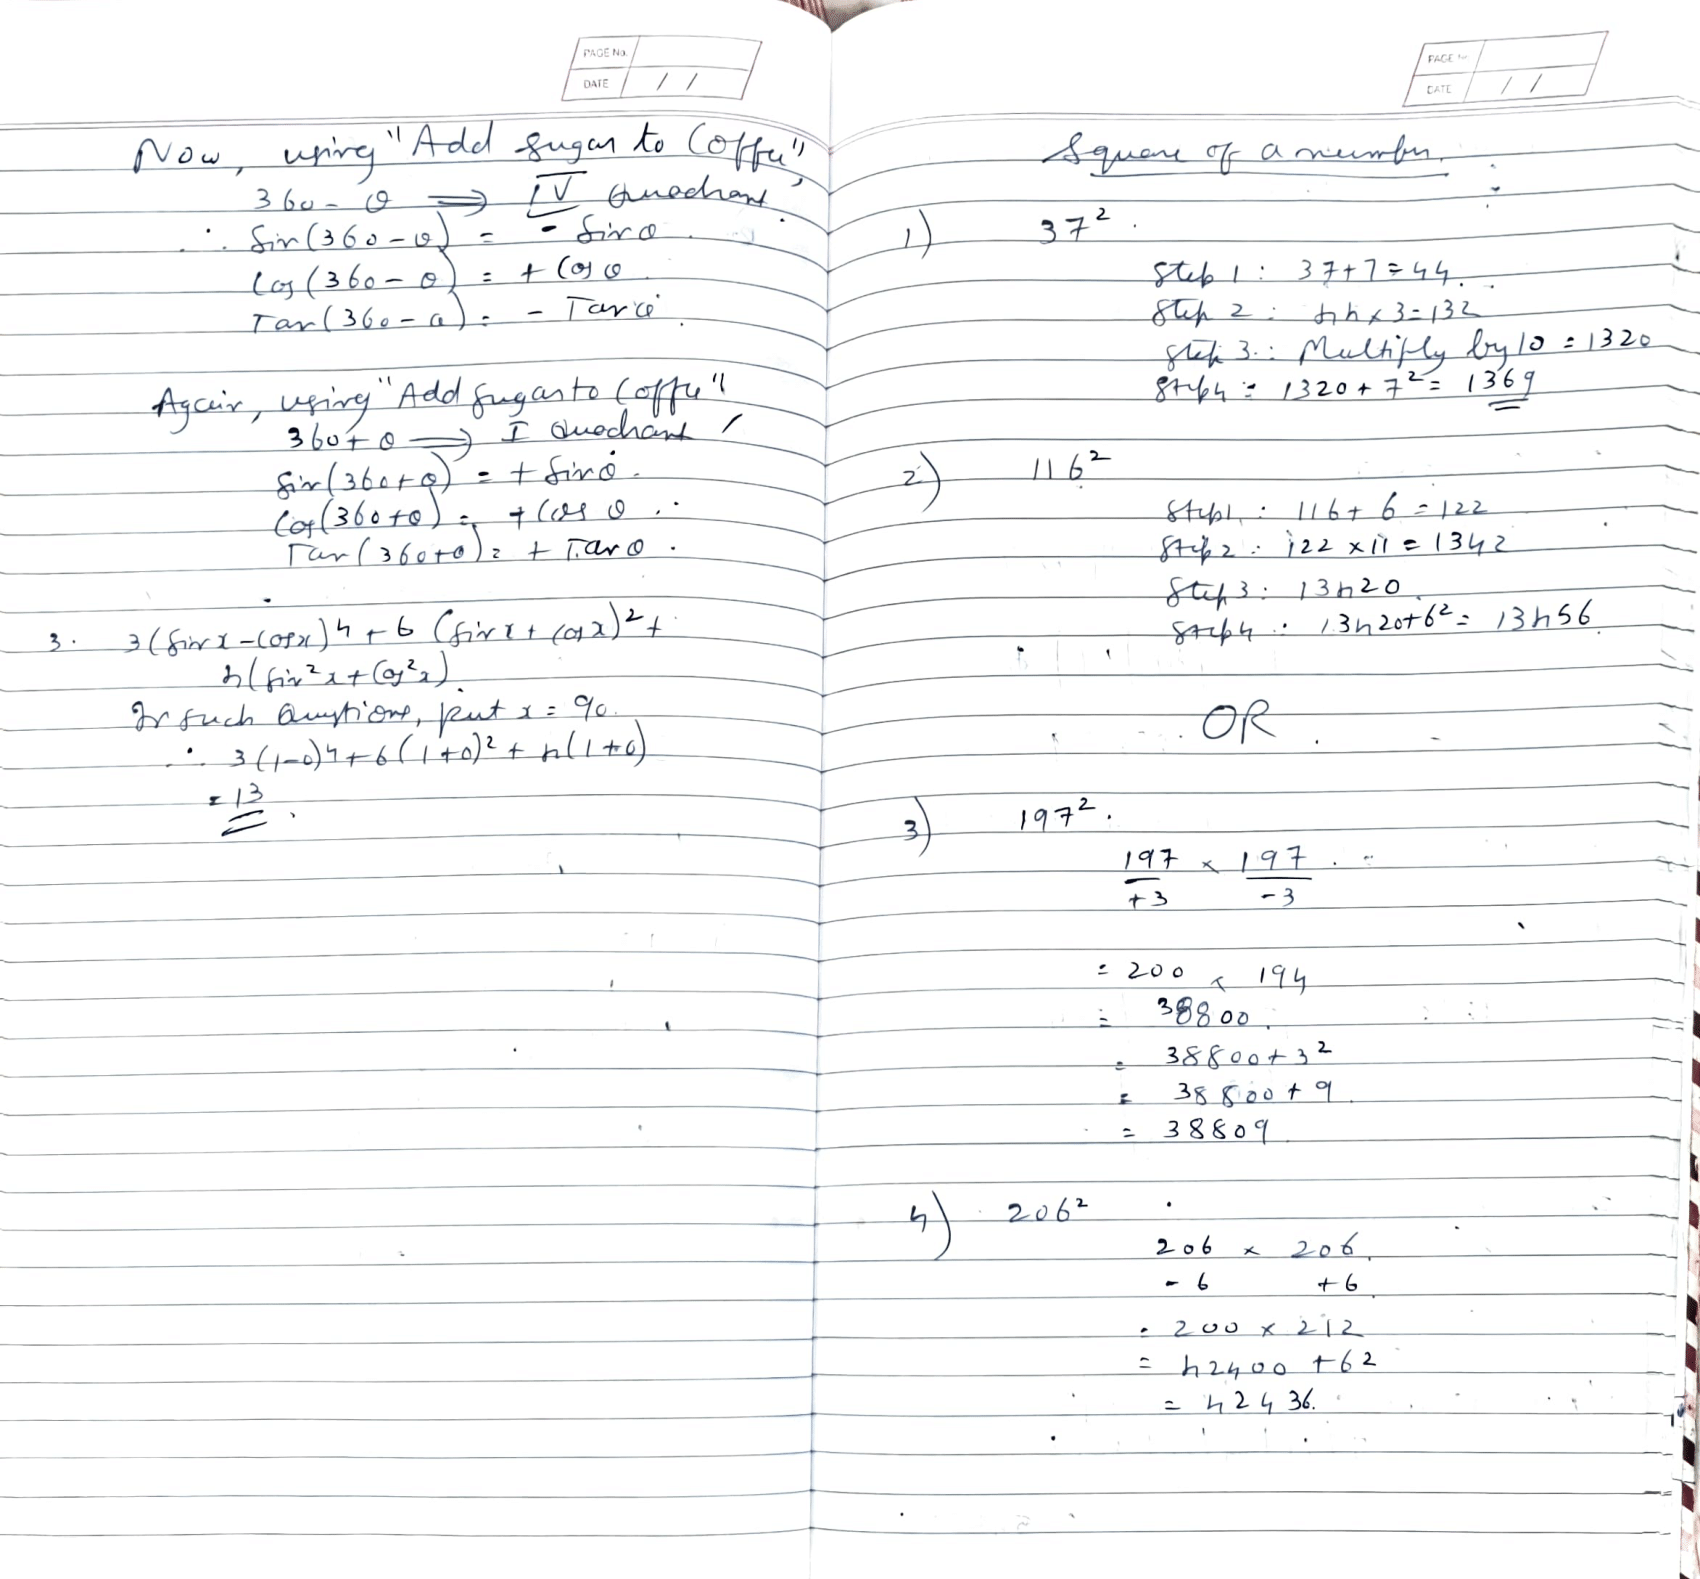 PAGE No.
DATE / /
Now, using "Add Sugar to Coffee",
360 - θ ⇒ IV Quadrant
∴ Sin(360-θ) = - Sinθ
Cos(360-θ) = + Cosθ
Tan(360-θ) = - Tanθ
Again, using "Add Sugar to Coffee"
360+θ ⇒ I Quadrant
Sin(360+θ) = + Sinθ.
Cos(360+θ) = + Cosθ
Tan(360+θ) = + Tanθ.
3. 3(Sinx-Cosx)4 + 6(Sinx+Cosx)² +
4(Sin²x+Cos²x)
In such Questions, put x = 90.
∴ 3(1-0)4+6(1+0)²+4(1+0)
= 13
PAGE No.
DATE / /
Square of a number.
1) 37².
Step 1: 37+7=44.
Step 2: 44x3=132
Step 3: Multiply by 10 = 1320
Step 4: 1320+7²= 1369
2) 116²
Step 1: 116+6=122
Step 2: 122x11=1342
Step 3: 13420
Step 4: 13420+6²= 13456
OR
3) 197².
197 x 197
+3 -3
= 200 x 194
= 38800
= 38800+3²
= 38800+9
= 38809
4) 206²
206 x 206
-6 +6
= 200 x 212
= 42400 +62
= 42436.